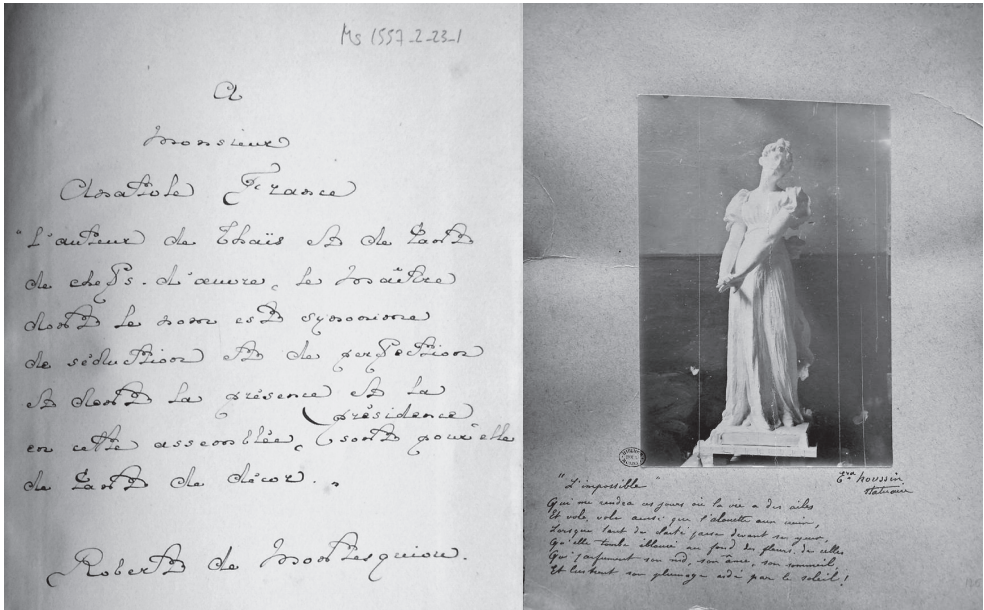 Ms 1557-2-23-1
A
Monsieur
Anatole France
"L'auteur de Thaïs et de tant
de chefs-d'œuvre, le Maître
dont le nom est synonime
de séduction et de perfection
et dont la présence et la
présidence
en cette assemblée, sont pour elle
de tant de décor.
Robert de Montesquiou.
"L'impossible"
Eed houssin
statuaire
Qui me rendra ces jours où la vie a des ailes
Et vole, vole ainsi que l'alouette aux cieux,
Lorsque tant de clarté passe devant ses yeux,
Qu'elle tombe éblouie au fond des fleurs, de celles
Qui parfument son nid, son âme, son sommeil,
Et lustrent son plumage aidé par le soleil!